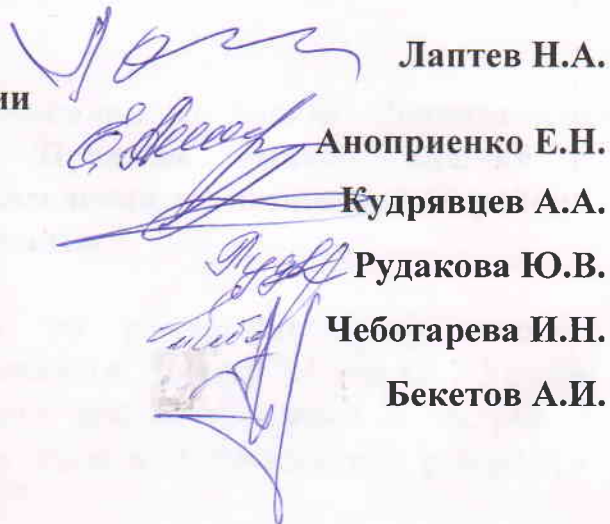 Лаптев Н.А.
ии
Аноприенко Е.Н.
Кудрявцев А.А.
Рудакова Ю.В.
Чеботарева И.Н.
Бекетов А.И.